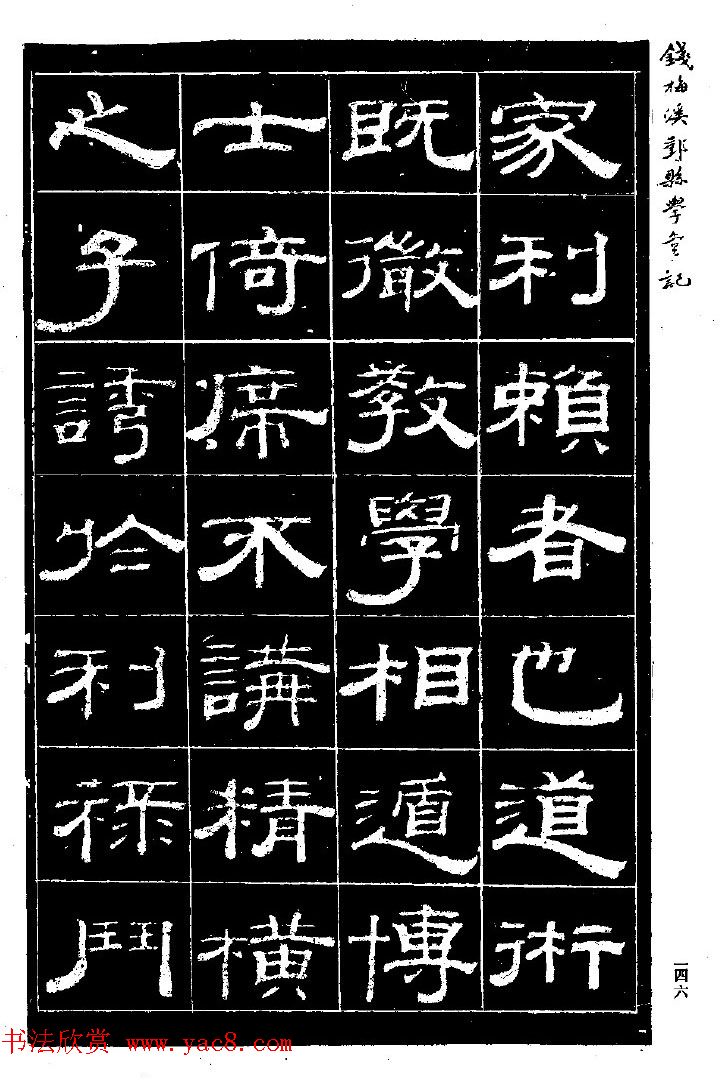 錢梅溪縣學記
家利賴者也道術
既微教學相遁博
士倚席不講精橫
之子誘於利祿鬥
一四六
书法欣赏 www.yac8.com